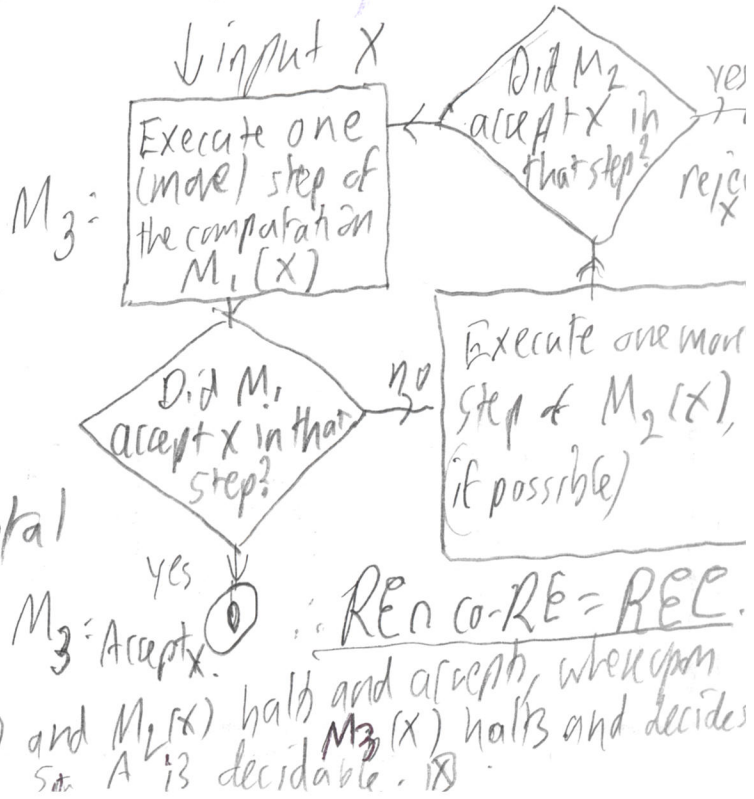 ↓ input x
Execute one
(more) step of
the computation
M₁(x)
M₃:
Did M₁
accept x in that
step?
yes
M₃: Accept x.
no
Execute one more
step of M₂(x),
(if possible)
Did M₂
accept x in
that step?
yes
x
∴ RE ∩ co-RE = REC.
halts and accepts, whereupon
) and M₂(x)
M₃(x) halts and decides
A is decidable. ⊠